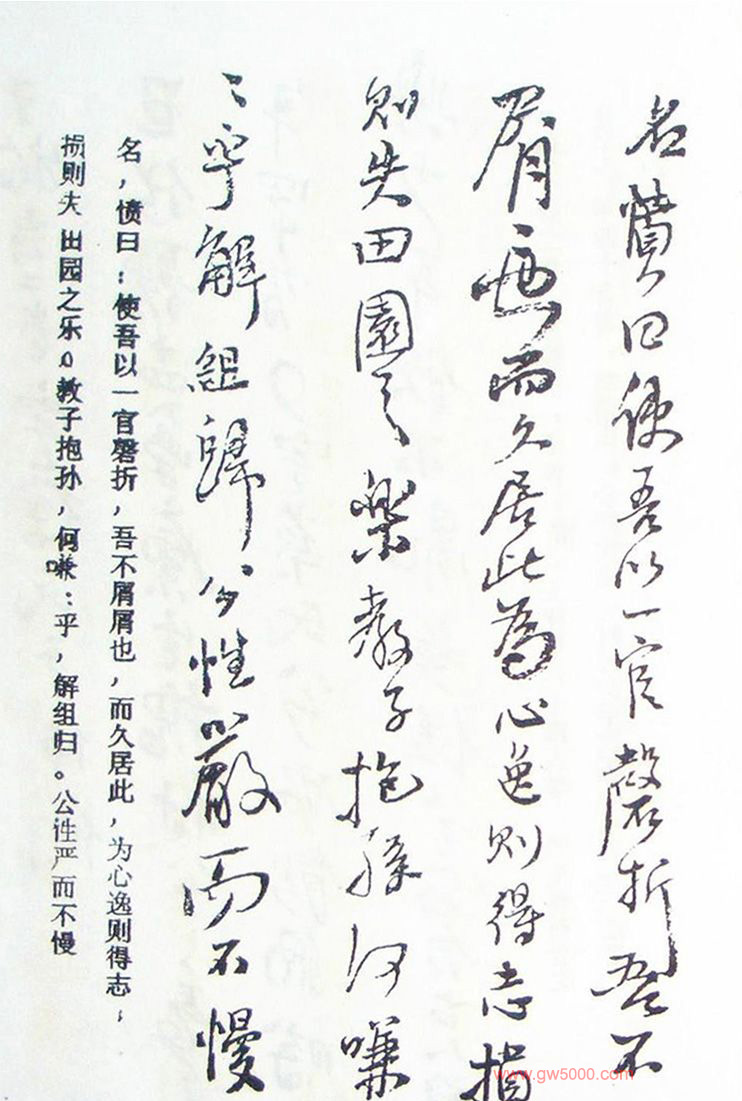 名憤曰使吾以一官磬折吾不
屑〻也而久居此為心逸則得志損
則失田園之樂教子抱孫何嗛
〻乎解組歸公性嚴而不慢
名，愤曰：使吾以一官磬折，吾不屑屑也，而久居此，为心逸则得志，
损则失田园之乐。教子抱孙，何嗛：乎，解组归。公性严而不慢
www.gw5000.com